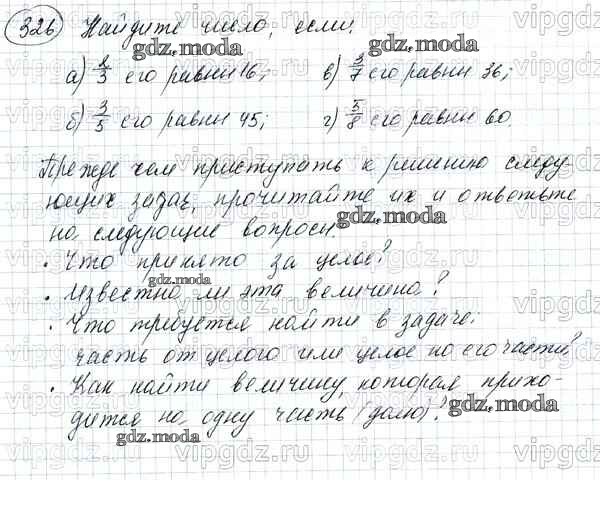 326 Найдите число, если:
а) 2/3 его равны 16; в) 3/7 его равны 36;
б) 3/5 его равны 45; г) 5/8 его равны 60.
Прежде чем приступать к решению следу-
ющих задач, прочитайте их и ответьте
на следующие вопросы.
• Что принято за целое?
• Известно ли эта величина?
• Что требуется найти в задаче:
часть от целого или целое по его части?
• Как найти величину, которая прихо-
дится на одну часть (долю)?
gdz.moda
gdz.moda
gdz.moda
gdz.moda
gdz.moda
gdz.moda
gdz.moda
gdz.moda
vipgdz